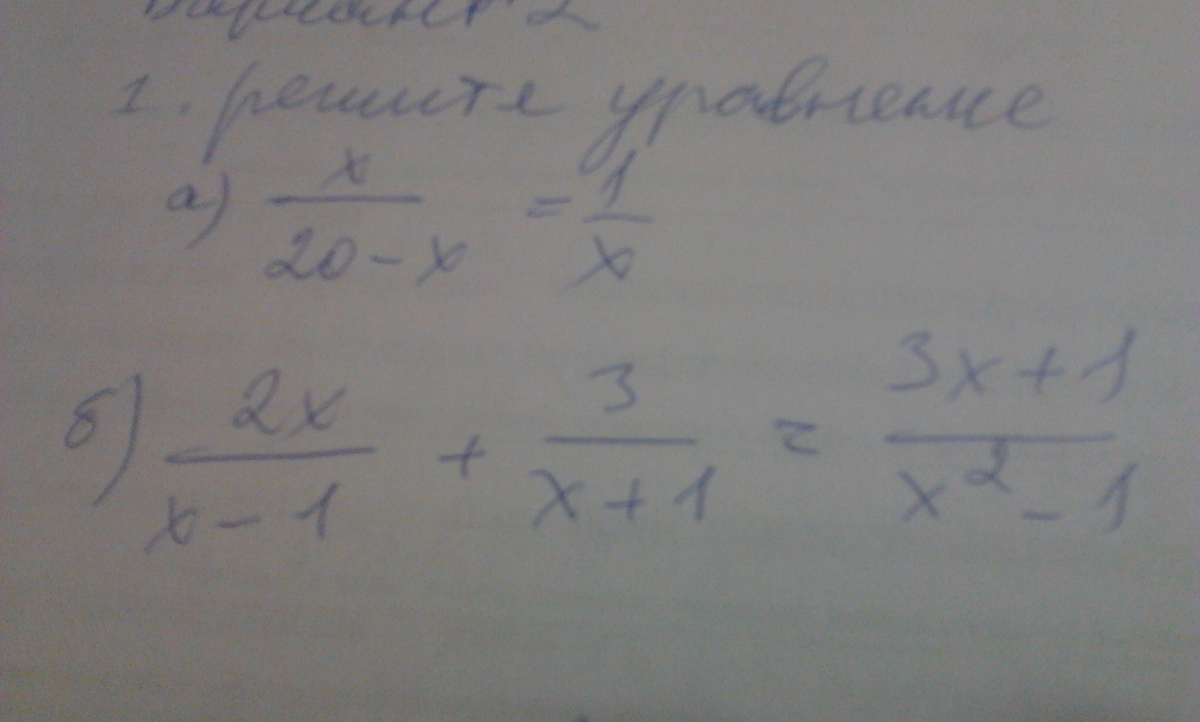 Вариант 2
1. решите уравнение
а) x/(20-x) = 1/x
б) 2x/(x-1) + 3/(x+1) = (3x+1)/(x²-1)